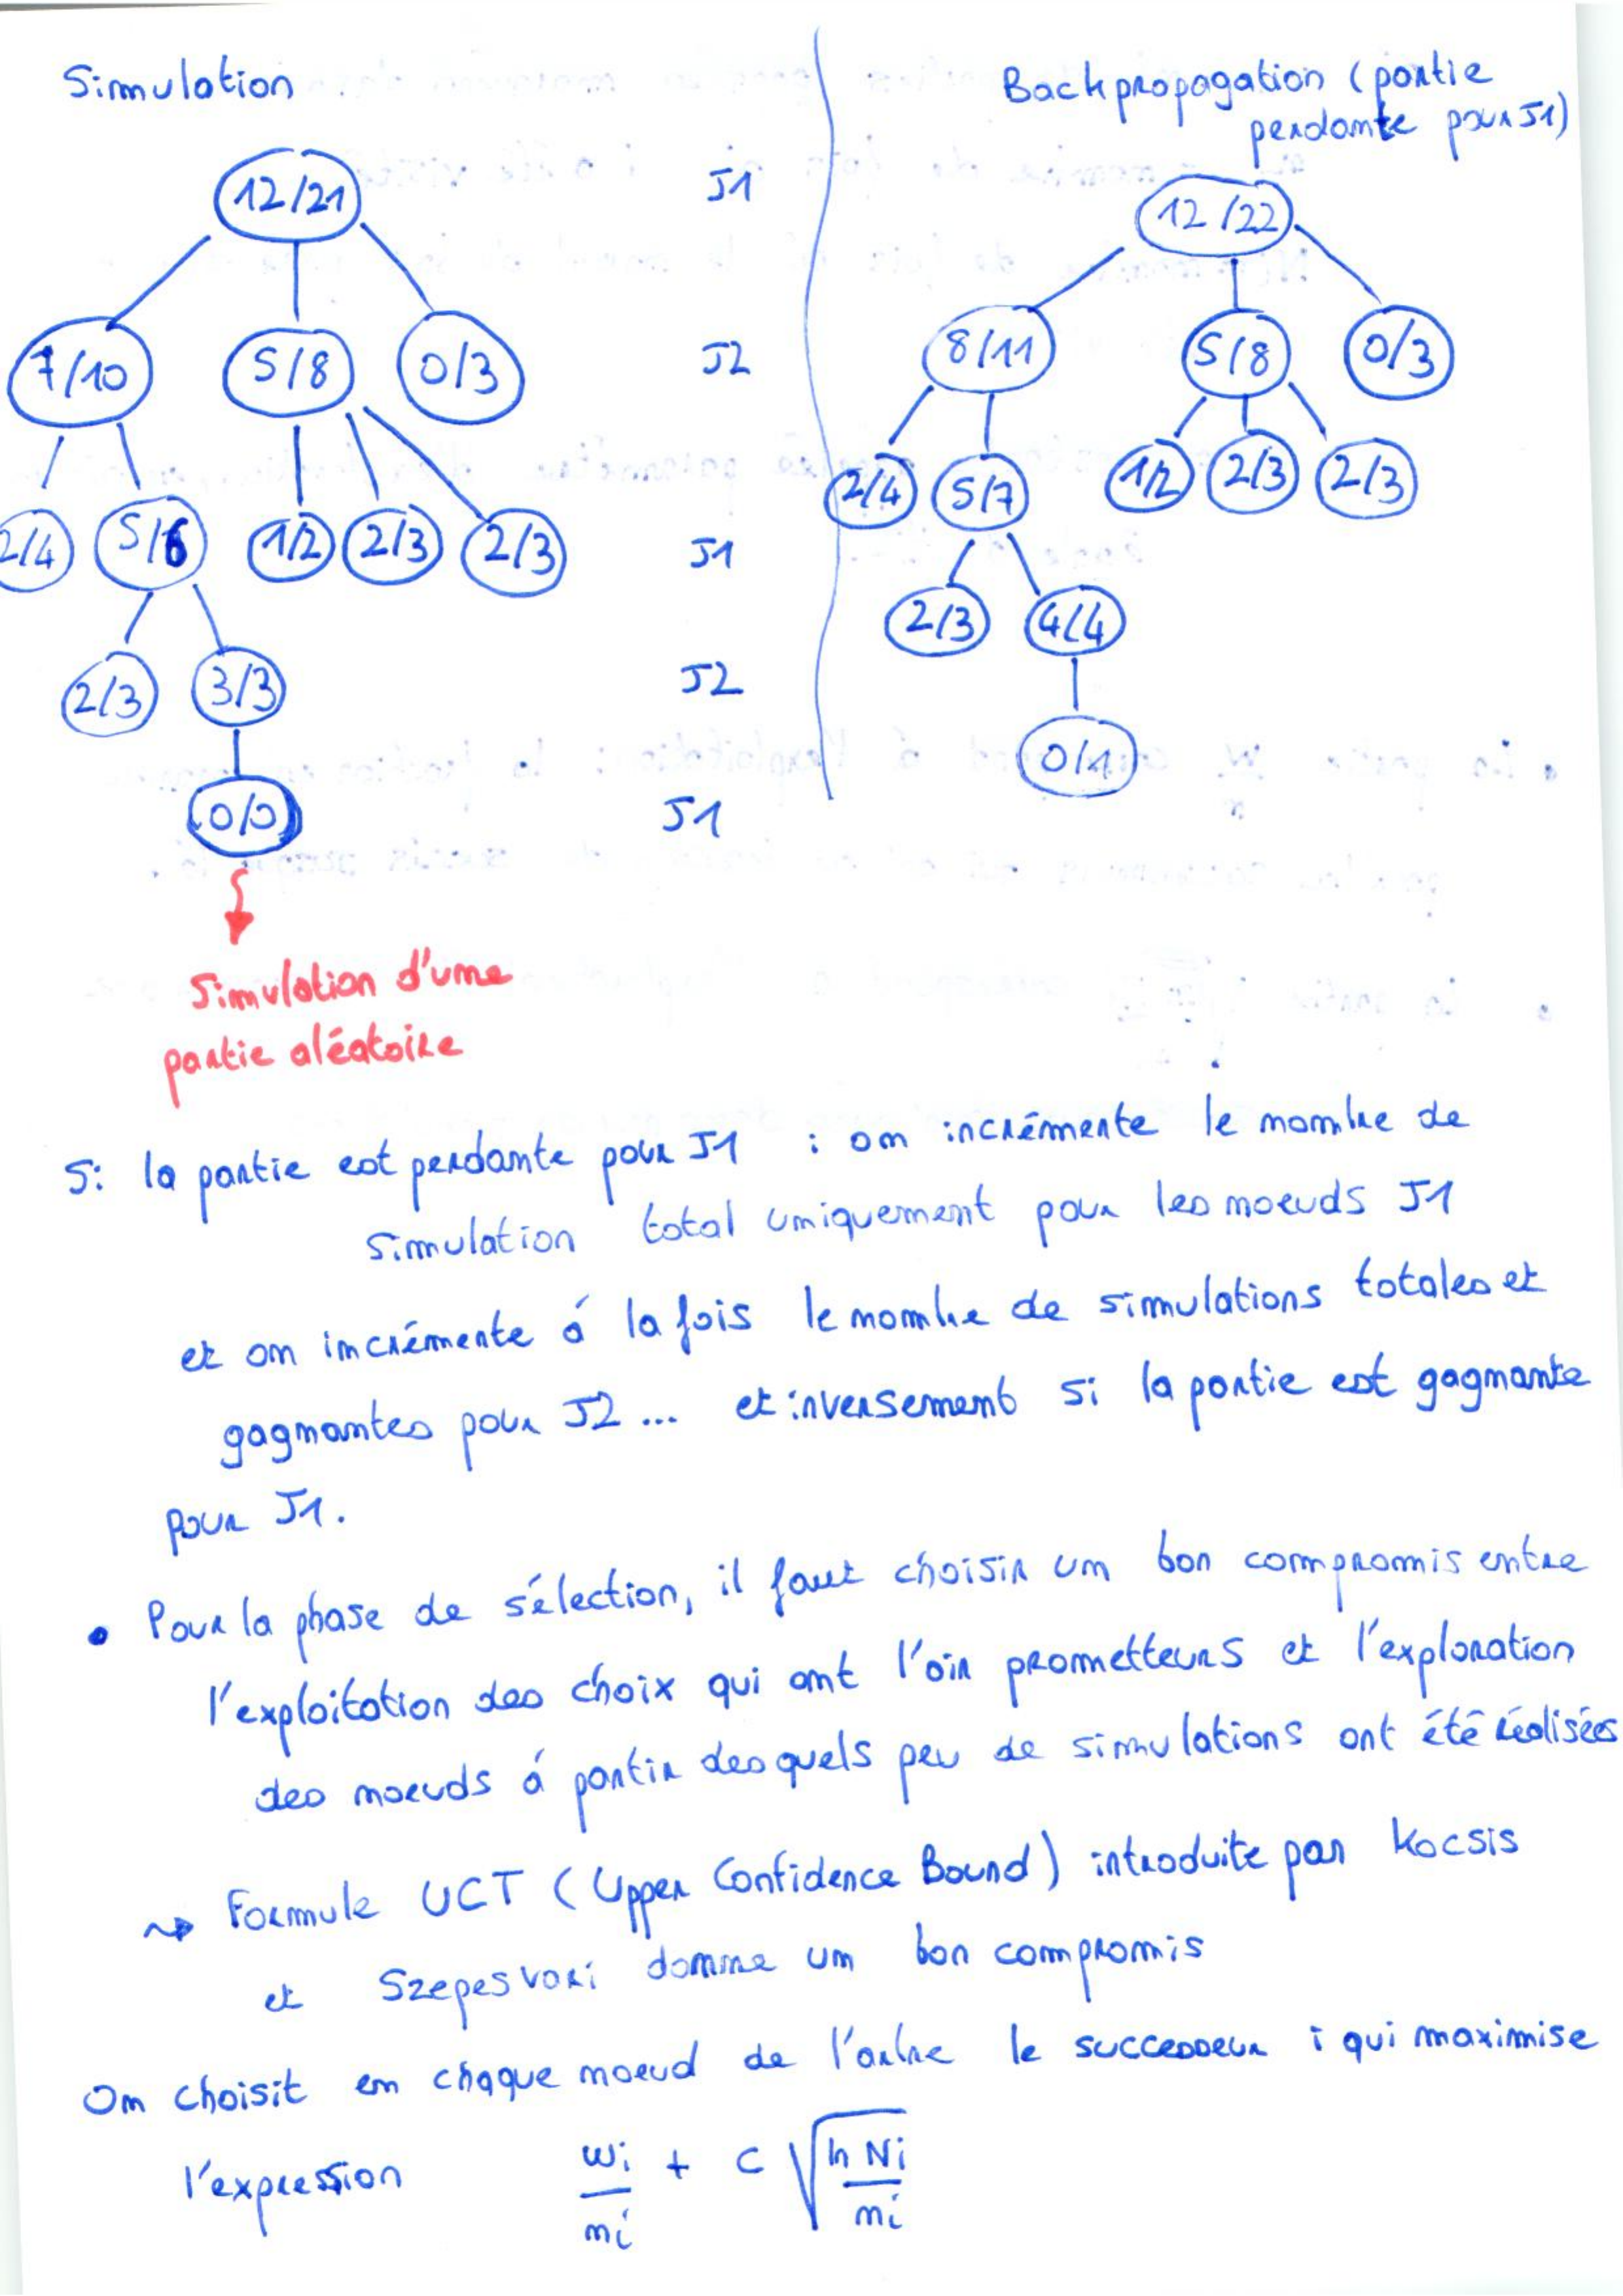 Simulation
12/21 J1
7/10 5/8 0/3 J2
2/4 5/6 1/2 2/3 2/3 J1
2/3 3/3 J2
0/0 J1
Simulation d'une
partie aléatoire
Backpropagation (partie
perdante pour J1)
12/22
8/11 5/8 0/3
2/4 5/7 1/2 2/3 2/3
2/3 4/4
0/1
Si la partie est perdante pour J1 : on incrémente le nombre de
simulation total uniquement pour les noeuds J1
et on incrémente à la fois le nombre de simulations totales et
gagnantes pour J2 ... et inversement si la partie est gagnante
pour J1.
• Pour la phase de sélection, il faut choisir un bon compromis entre
l'exploitation des choix qui ont l'air prometteurs et l'exploration
des noeuds à partir desquels peu de simulations ont été réalisées
⇝ Formule UCT (Upper Confidence Bound) introduite par Kocsis
et Szepesvari donne un bon compromis
On choisit en chaque noeud de l'arbre le successeur i qui maximise
l'expression wi/ni + c √(ln Ni/ni)